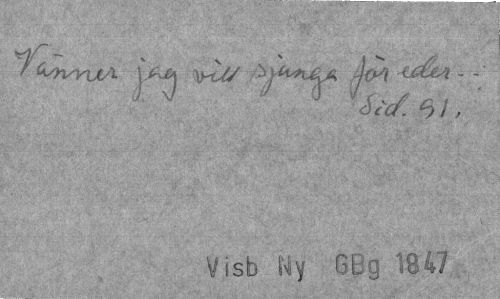 Vänner jag vill sjunga för eder. .
Sid. 91.
Visb Ny GBg 1847